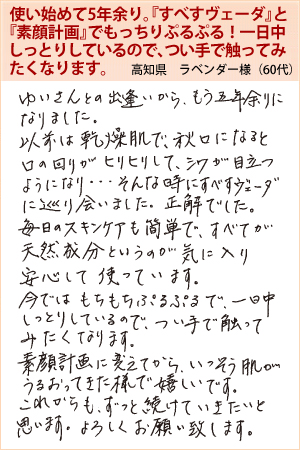 使い始めて5年余り。『すべすヴェーダ』と
『素顔計画』でもっちりぷるぷる！一日中
しっとりしているので、つい手で触ってみ
たくなります。　高知県　ラベンダー様（60代）
ゆいさんとの出逢いから、もう五年余りに
なりました。
以前は乾燥肌で、秋口になると
口の回りがヒリヒリして、シワが目立つ
ようになり・・・そんな時にすべすヴェーダ
に巡り会いました。正解でした。
毎日のスキンケアも簡単で、すべてが
天然成分というのが気に入り
安心して使っています。
今ではもちもちぷるぷるで、一日中
しっとりしているので、つい手で触って
みたくなります。
素顔計画に変えてから、いっそう肌が
うるおってきた様で嬉しいです。
これからも、ずっと続けていきたいと
思います。よろしくお願い致します。